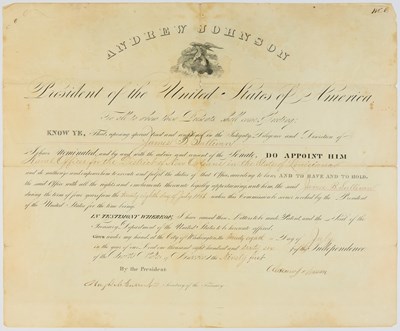 ANDREW JOHNSON
President of the United States of America,
To all to whom these Presents shall come, Greeting:
KNOW YE, That reposing special trust and confidence in the Integrity, Diligence and Discretion of
James Sullivan
I have Nominated, and by and with the advice and consent of the Senate, DO APPOINT HIM
Naval Officer for the District of
and do authorize and empower him to execute and fulfil the duties of that Office according to law; AND TO HAVE AND TO HOLD,
the said Office with all the rights and emoluments thereunto legally appertaining unto him the said James Sullivan
of July 1866 unless this Commission be sooner revoked by the President
of the United States for the time being.
IN TESTIMONY WHEREOF, I have caused these Letters to be made Patent, and the Seal of the
Treasury Department of the United States to be hereunto affixed.
GIVEN under my hand, at the City of Washington, the twenty eighth Day of July
in the year of our Lord one thousand eight hundred and sixty six and of the Independence
of the United States of America the Ninety first.
By the President
Andrew Johnson
Secretary of the Treasury